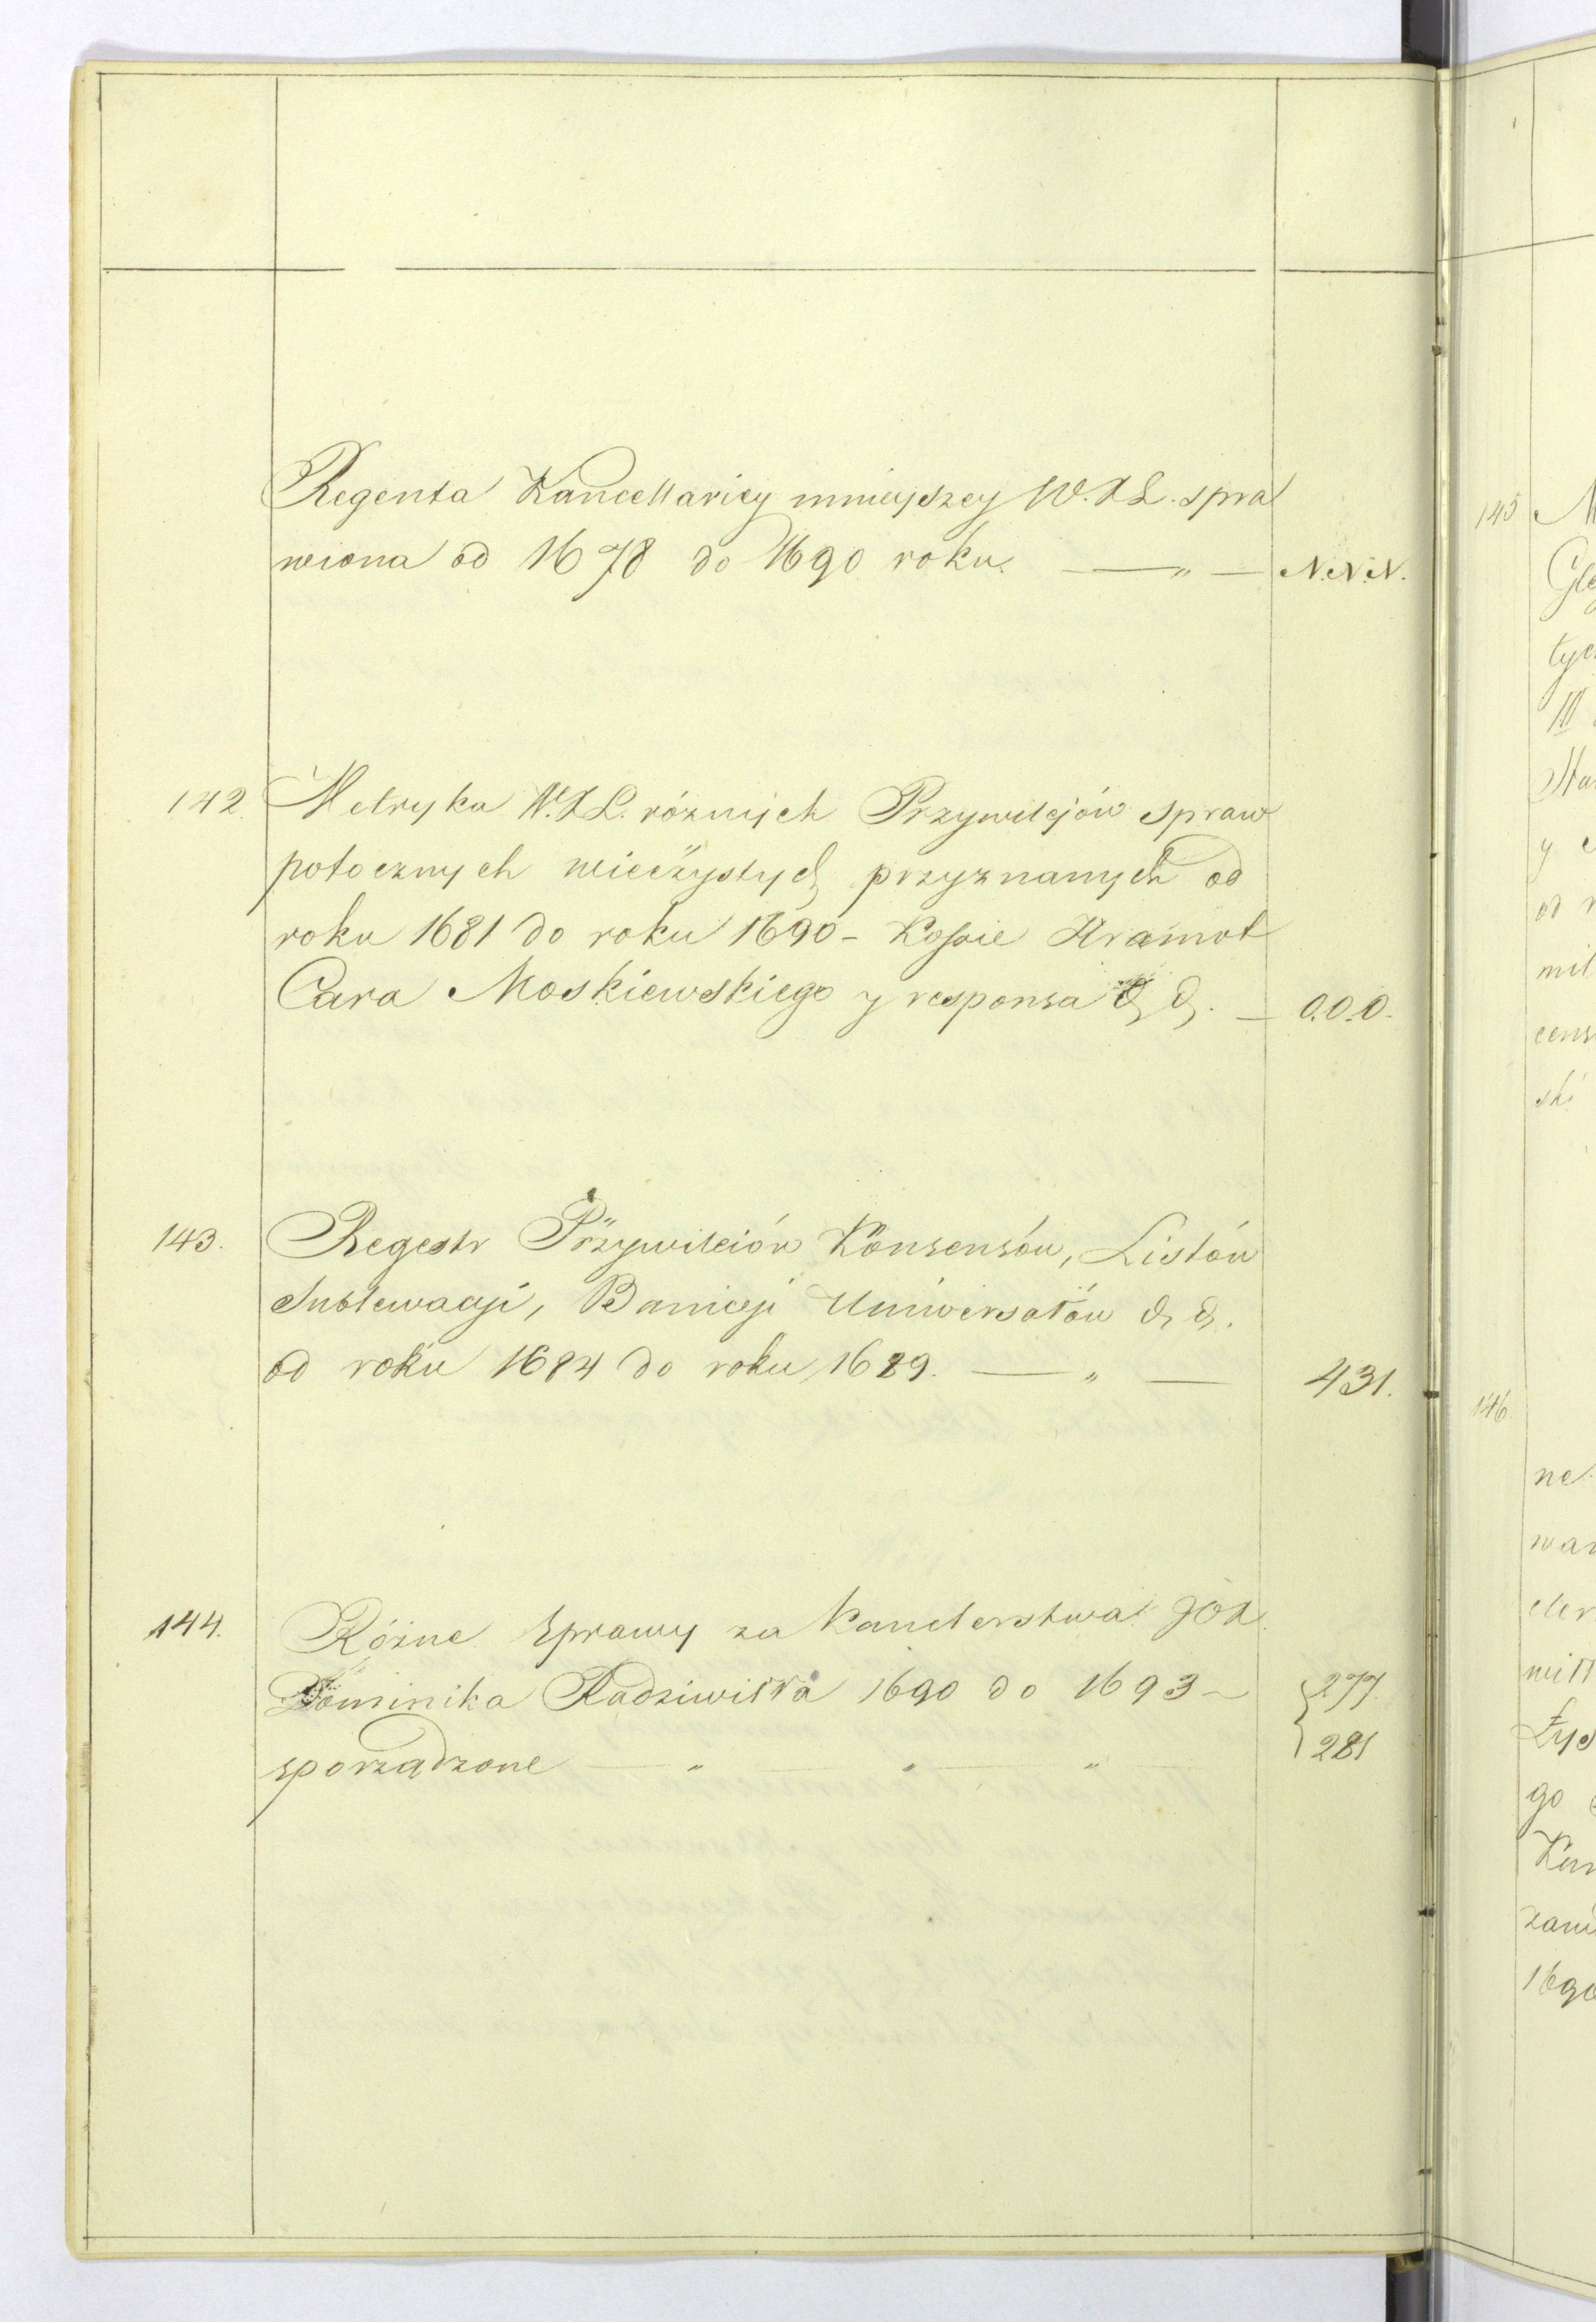 Regenta Kancellariey mnieyszey W.X.L. spra
wiona od 1678 do 1690 roku. — " — N.N.N.
142. Metryka W.X.L. różnych Przywilejów spraw
potocznych wieczystych przyznanych od
roku 1681 do roku 1690 - Kopie Hramot
Cara Moskiewskiego y responsa & &. — O.O.O.
143. Regestr Przywileiów Konsensów, Listów
Sublewacyi, Banicyi Uniwersałów & &.
od roku 1684 do roku 1689. — " — 431.
144. Różne Sprawy za Kanclerstwa JOX.
Dominika Radziwiłła 1690 do 1693 - 277.
sporządzone — " — " — " — 281
145
146.